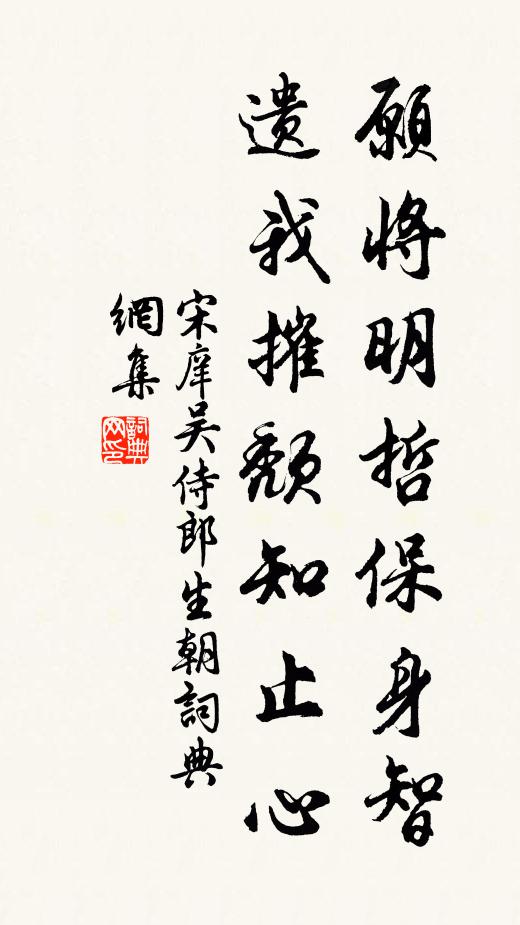 願將明哲保身智
遺我摧頹知止心
宋庠吳侍郎生朝詞典
網集
詞典
网印